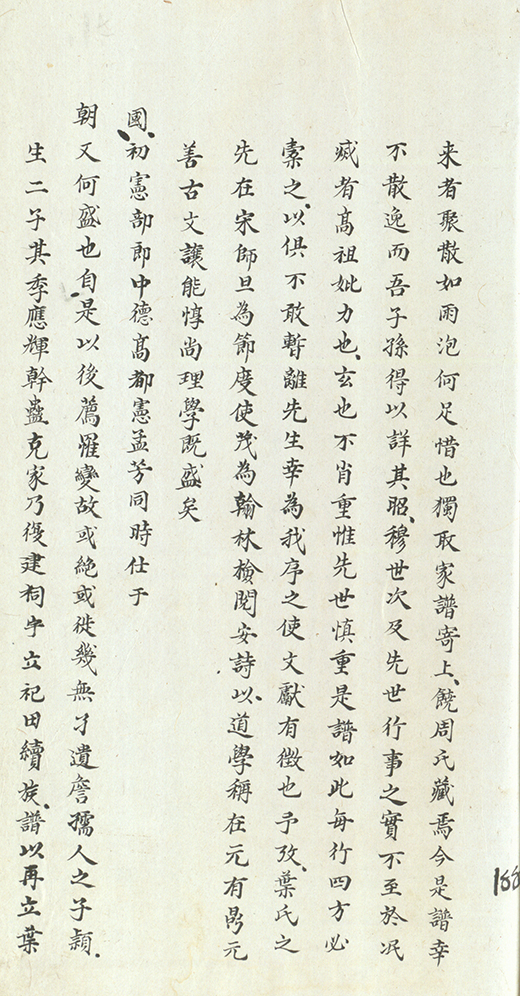 来者聚散如雨泡何足惜也獨取家譜寄上饒周氏藏焉今是譜幸
不散逸而吾子孫得以詳其昭穆世次及先世行事之實不至於泯
滅者高祖妣力也玄也不肖重惟先世慎重是譜如此每行四方必
橐之以俱不敢暫離先生幸為我序之使文獻有徵也予攷葉氏之
先在宋師旦為節度使茂為翰林檢閱安詩以道學稱在元有昺元
善古文讓能惇尚理學既盛矣
國初憲部郎中德高都憲孟芳同時仕于
朝又何盛也自是以後薦罹變故或絶或徙幾無孑遺詹孺人之子頴
生二子其季應輝幹蠱克家乃復建祠宇立祀田續族譜以再立葉
188